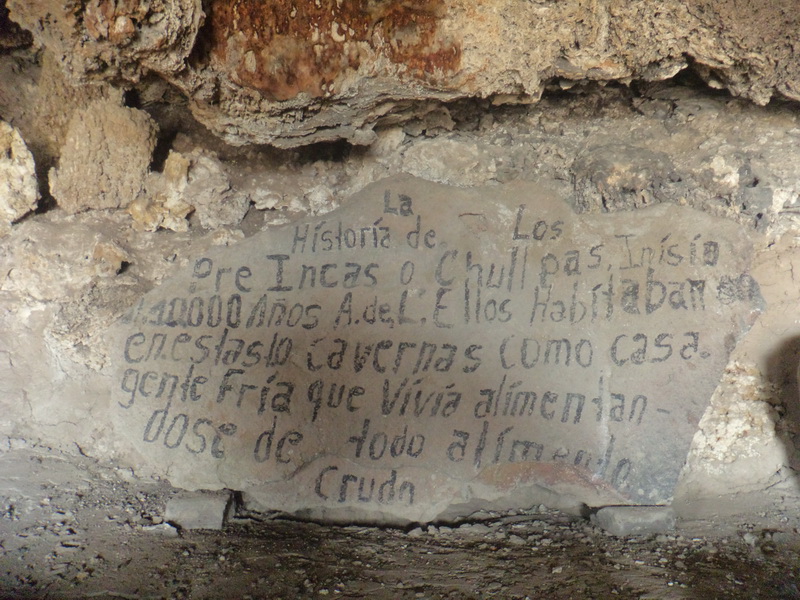 La
Historía de Los
Pre Incas o Chullpas. Inisio
10.000 Años A.de.L. Ellos Habítaban
en.estasto cavernas Como casa.
gente Fría que Vivía alímentan-
dose de todo alímento
Crudo